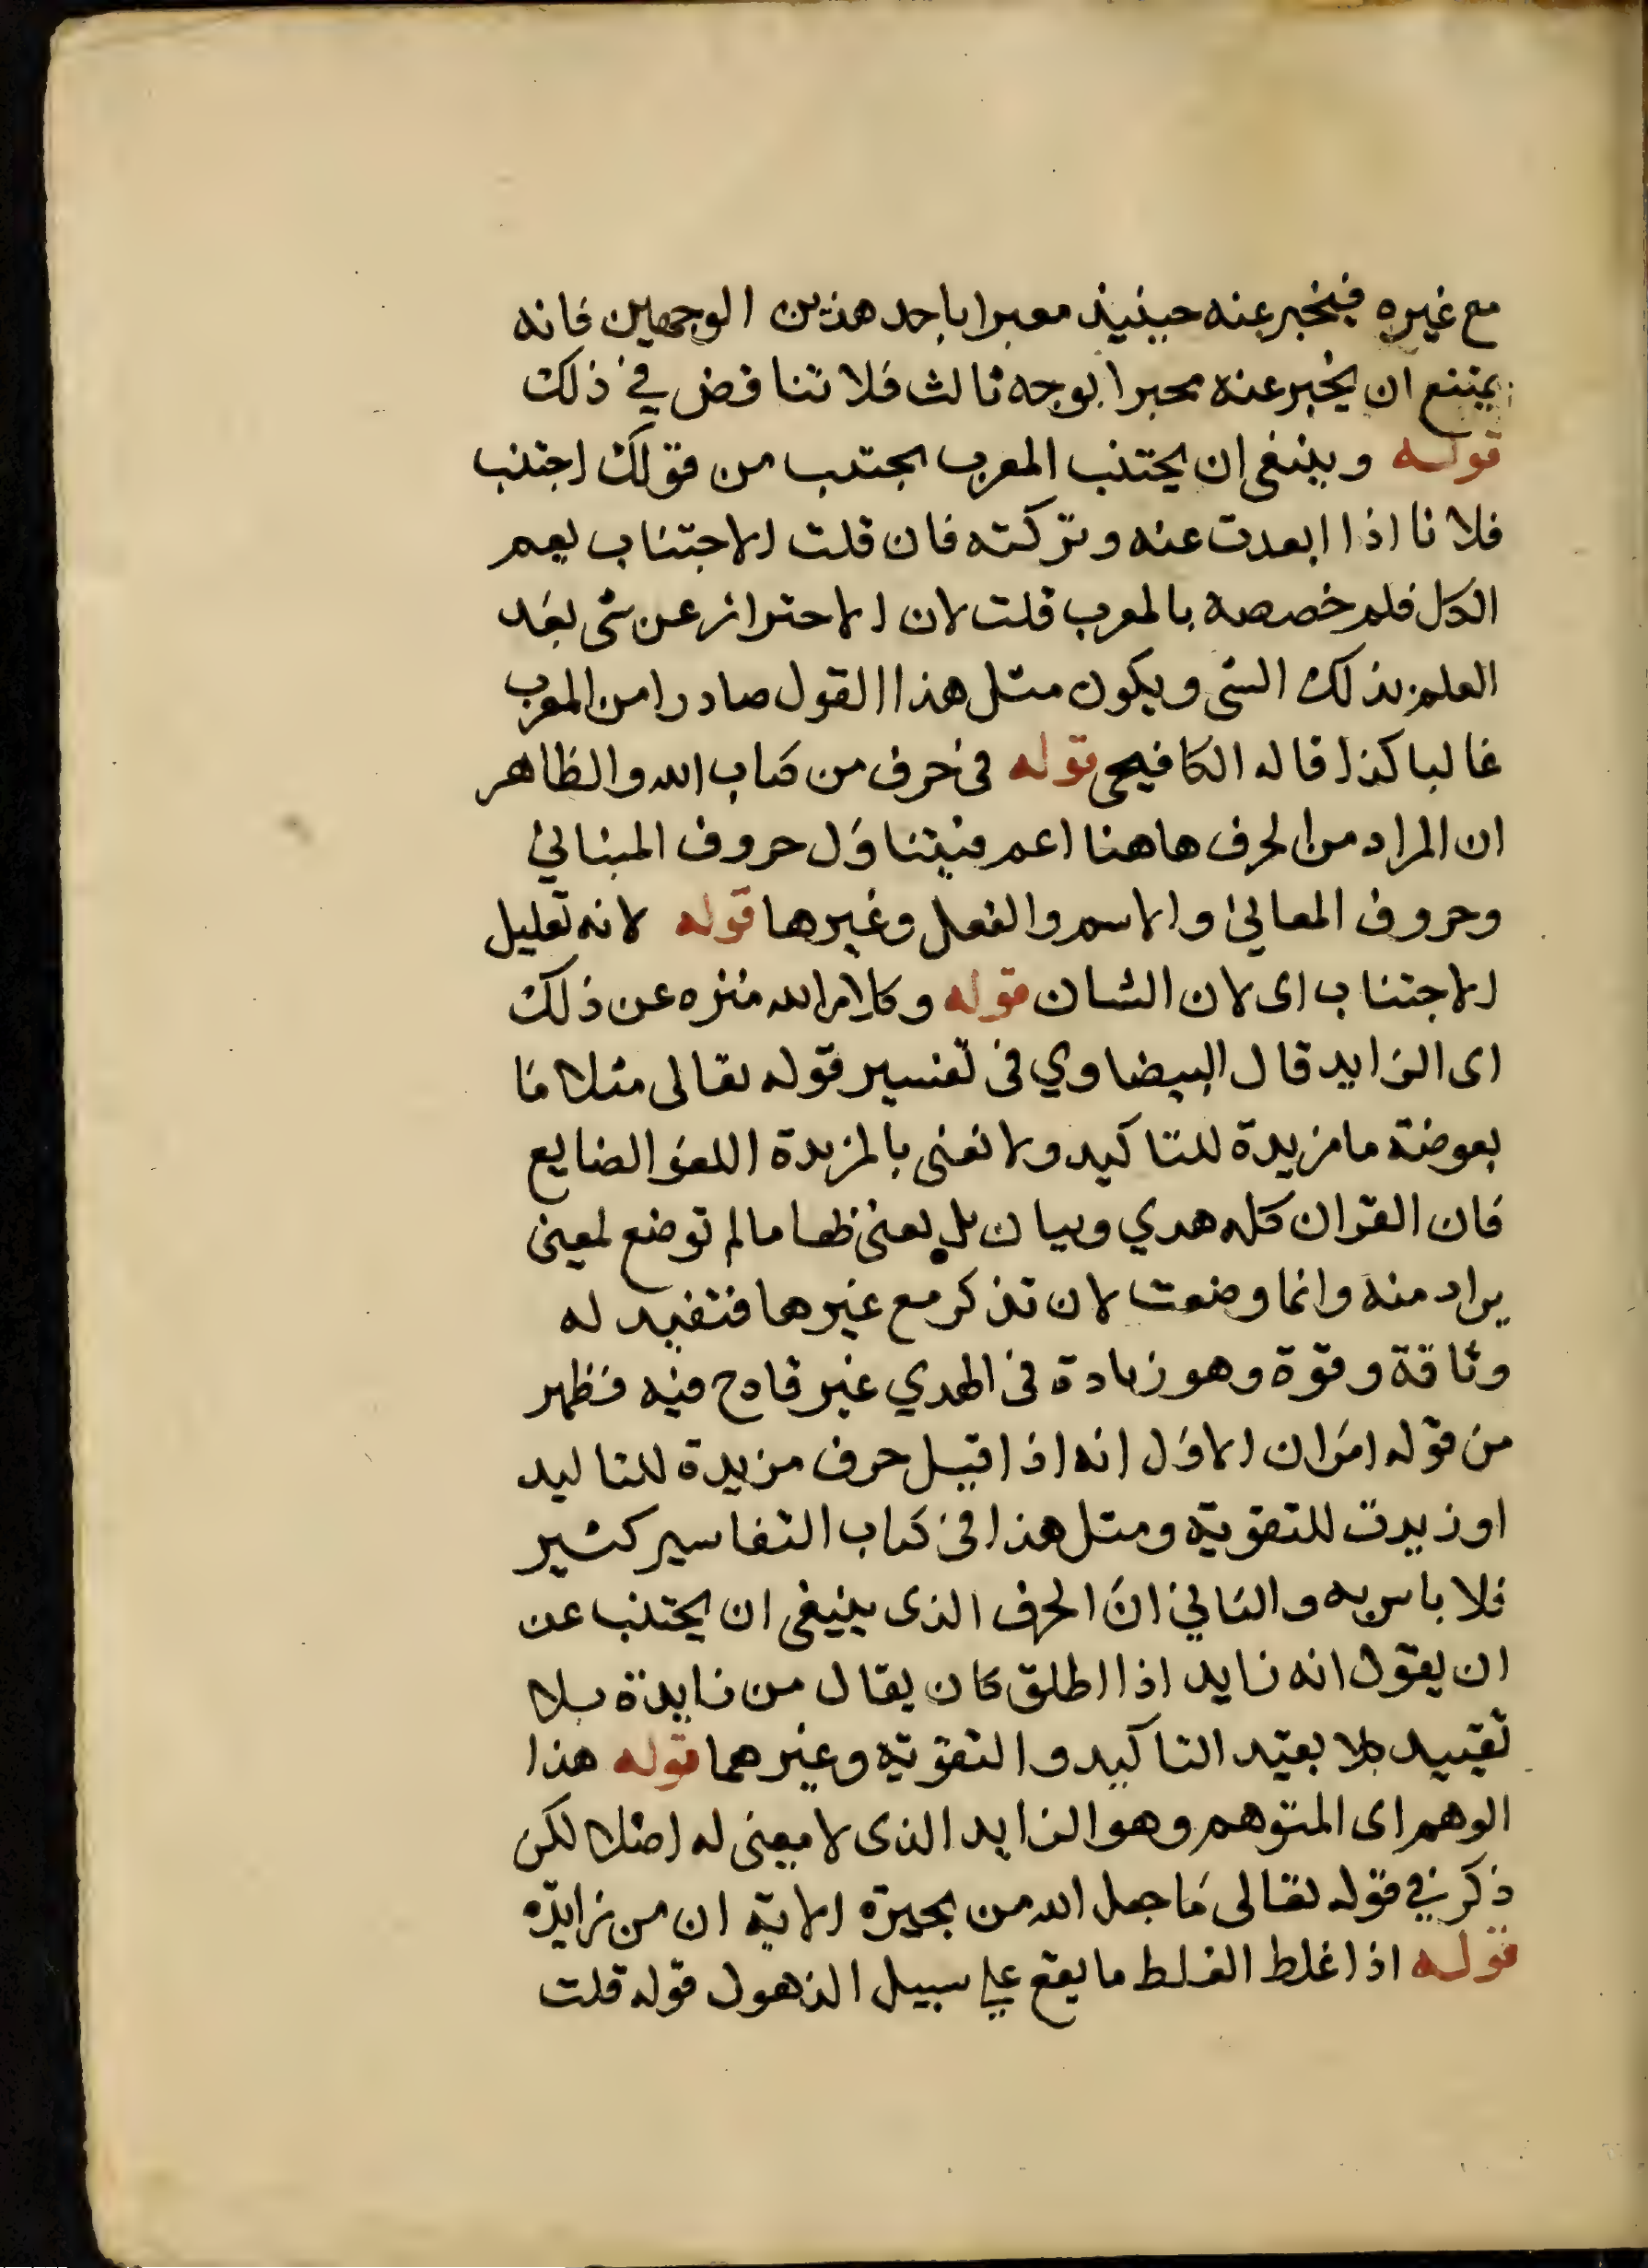 مع غيره فيخبر عنه حينيذ معبرا باحد هذين الوجهين فانه
يمتنع ان يخبر عنه مخبرا بوجه ثالث فلا تناقض في ذلك
قوله وينبغى ان يجتنب المعرب يجتنب من قولك اجتنب
فلانا اذا ابعدت عنه وتركته فان قلت الاجتناب يعم
الكل فلم خصصه بالمعرب قلت لان الاحتراز عن شى بعد
العلم بذلك الشى ويكون مثل هذا القول صادرا من المعرب
غالبا كذا قاله الكافيجى قوله فى حرف من كتاب الله والظاهر
ان المراد من الحرف هاهنا اعم فيتناول حروف المبانى
وحروف المعانى والاسم والفعل وغيرها قوله لانه تعليل
الاجتناب اى لان الشان قوله وكلام الله منزه عن ذلك
اى الزايد قال البيضاوي فى تفسير قوله تعالى مثلا ما
بعوضة ما مزيدة للتاكيد ولا نعنى بالمزيدة اللغو الضايع
فان القران كله هدي وبيان بل يعنى ما لم توضع لمعنى
يراد منه وانما وضعت لان تذكر مع غيرها فتفيد له
وثاقة وقوة وهو زيادة فى الهدي غير قادح فيه فظهر
من قوله امران الاول انه اذا قيل حرف مزيدة للتاليد
او زيدت للتقوية ومثل هذا فى كتاب التفاسير كثير
فلا باس به والثاني ان الحرف الذى ينبغى ان يجتنب عن
ان يقول انه زايد اذا اطلق كان يقال من زايدة بلا
تقييد بلا بقيد التاكيد والتقوية وغيرهما قوله هذا
الوهم اى المتوهم وهو الزايد الذى لا معنى له اصلا لكن
ذكر في قوله تعالى ما جعل الله من بحيرة الاية ان من زايدة
قوله اذا غلط الغلط ما يقع على سبيل الذهول قوله قلت